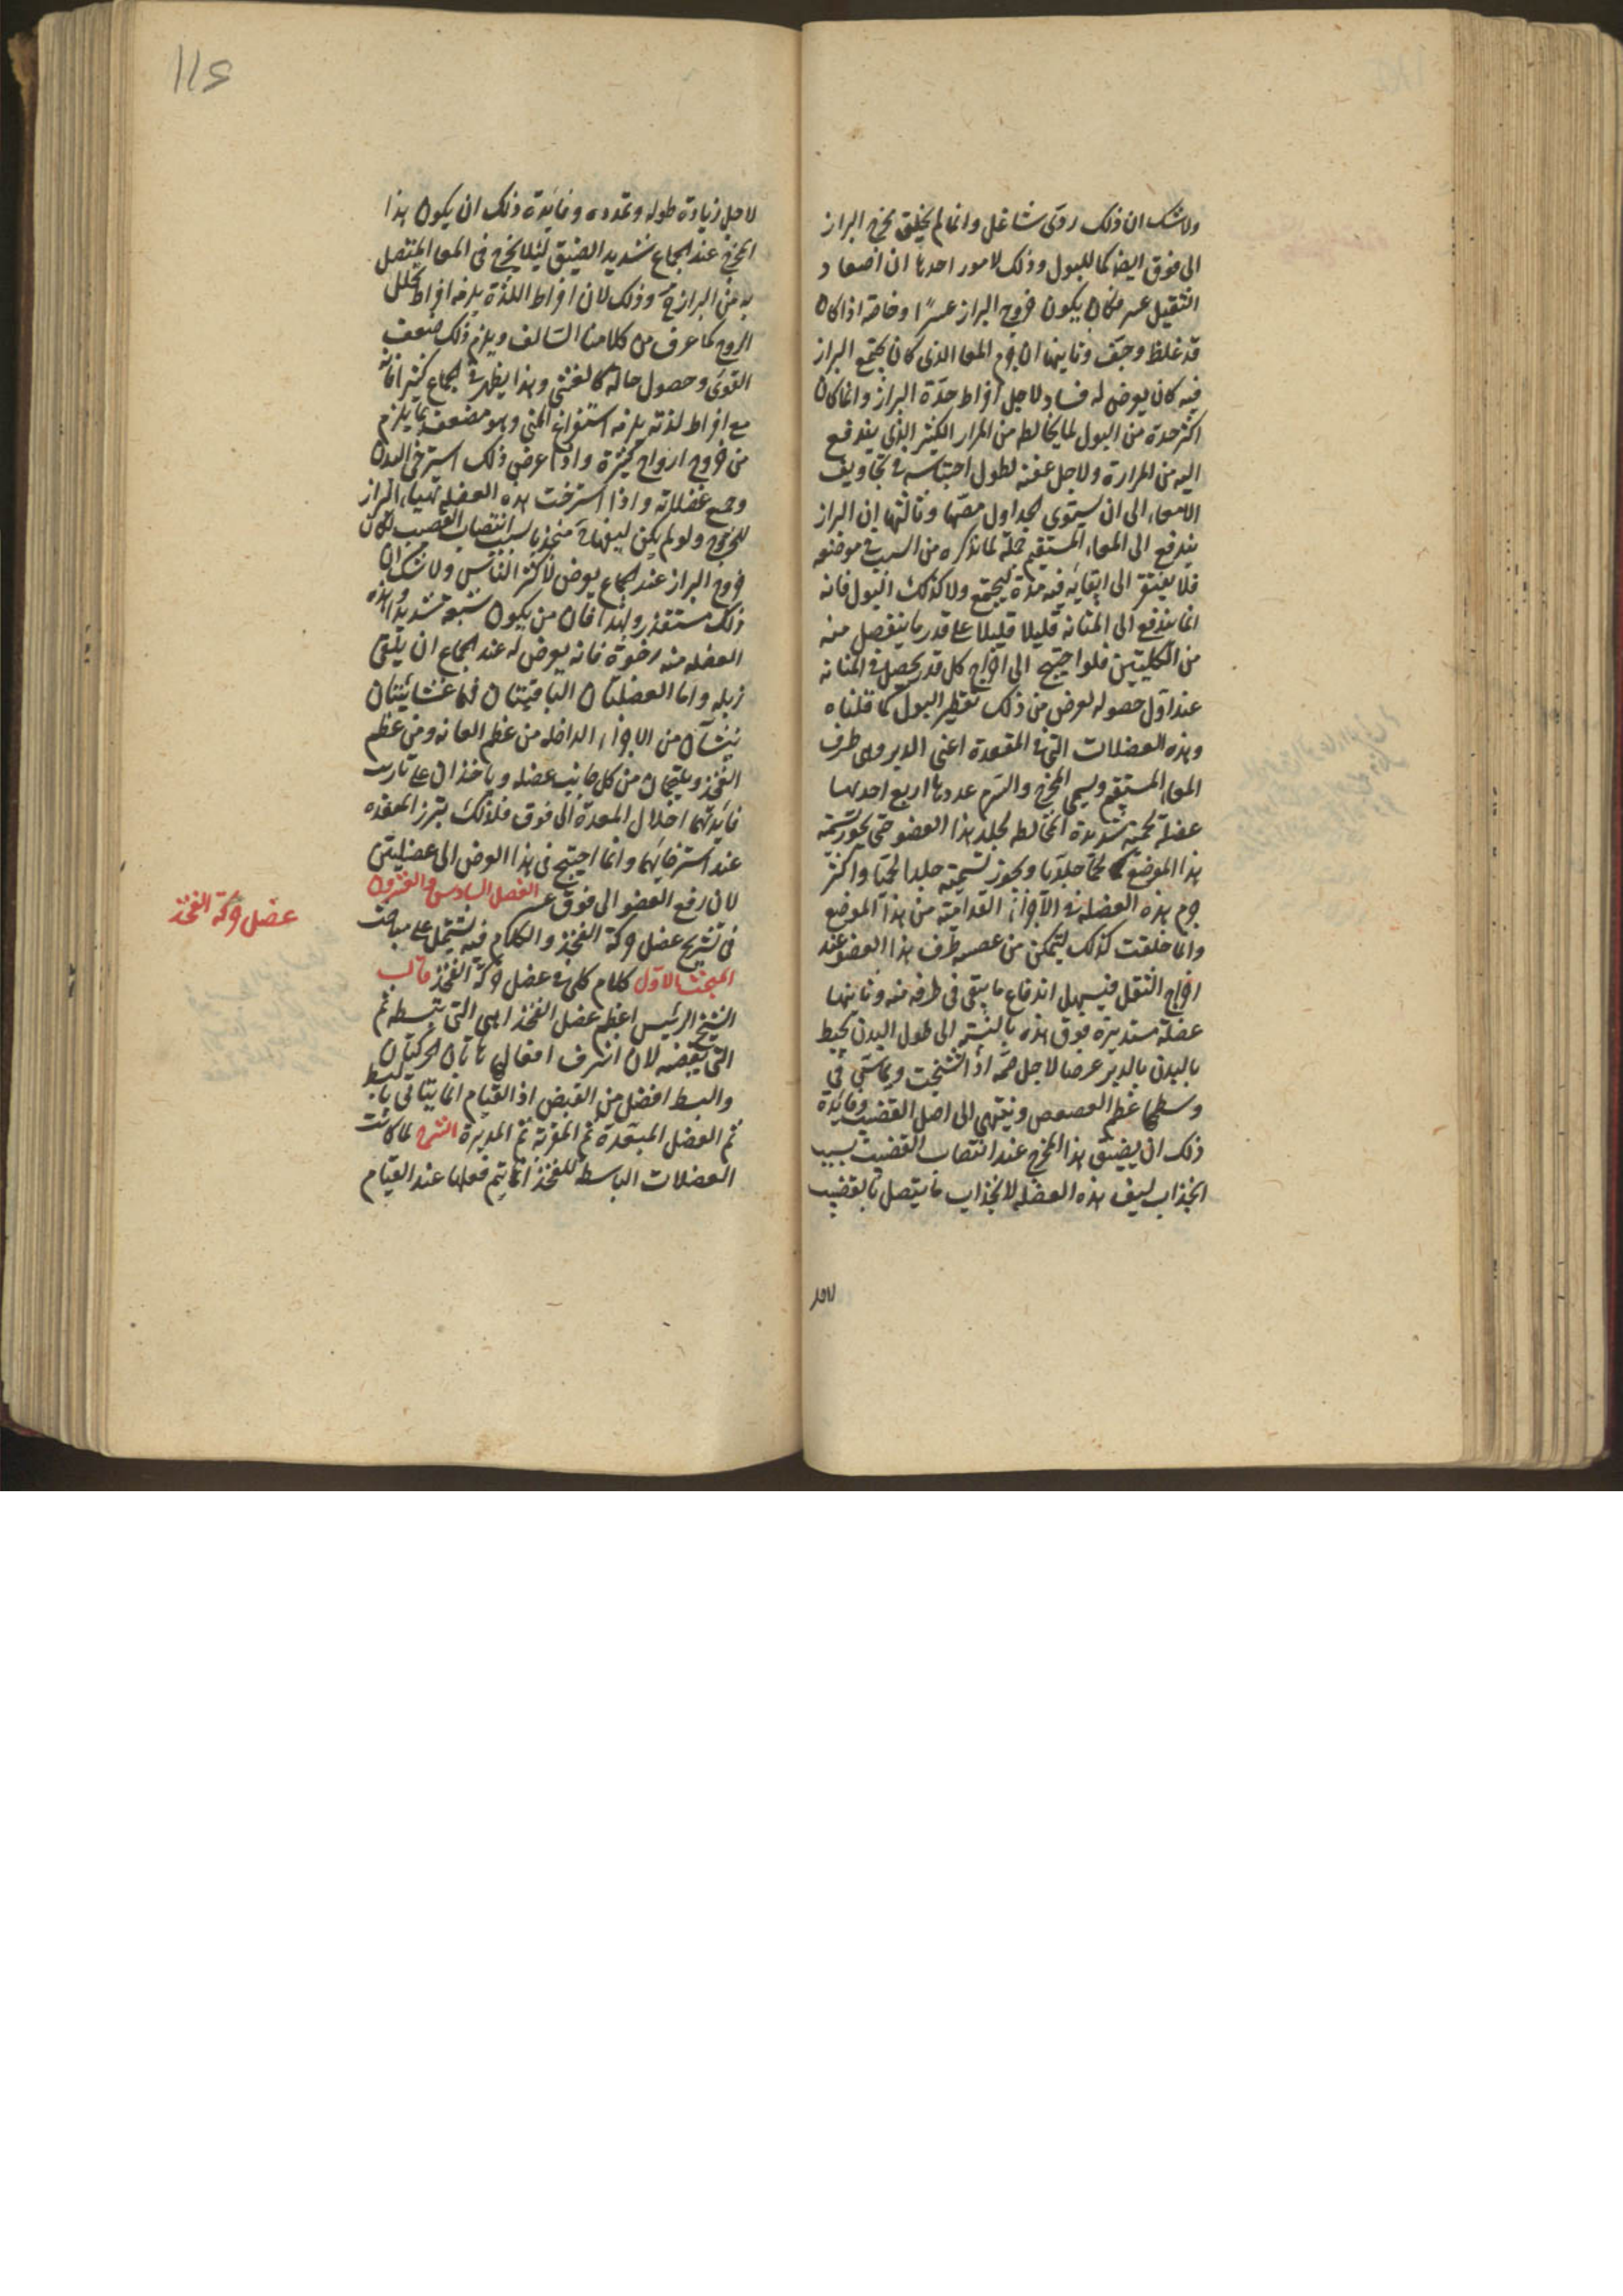 ولا شك ان ذلك ردئ شاغل وانما لم يخلق مخرج البراز
الى فوق ايضا كما للبول وذلك لامور احدها ان اصعاد
الثقيل عسر فكان يكون خروج البراز عسرًا وخاصة اذا كان
قد غلظ وجف وثانيها ان جرم المعا الذى كان يجتمع البراز
فيه كان يعرض له فساد لاجل افراط حدّة البراز وانما كان
اكثر حدة من البول لما يخالطه من المرار الكثير الذى يندفع
اليه من المرارة ولاجل عفنه لطول احتباسه فى تجاويف
الامعاء الى ان يستوى الجداول مصّها وثالثها ان البراز
يندفع الى المعاء المستقيم جملة لما نذكره من السبب فى موضعه
فلا يفتقر الى ابقايه فيه مدة ليجتمع ولا كذلك البول فانه
انما يندفع الى المثانه قليلا قليلا على قدر ما ينفصل منه
من الكليتين فلو احتيج الى اخراج كل قدر يحصل فى المثانه
عند اول حصوله لعرض من ذلك تقطير البول كما قلناه
وهذه العضلات التى فى المقعدة اعنى الدبر وهى طرف
المعاء المستقيم ويسمى المخرج والسرم عددها اربع احدها
عضلة لحمية شديدة المخالطه لجلد هذا العضو حتى يجوز تسمية
هذا الموضع لحمًا جلديا ويجوز تسميته جلدا لحميًا واكثر
جرم هذه العضله فى الاجزاء القداميّه من هذا الموضع
وانما خلقت كذلك ليتمكن من عصر طرف هذا العضو عند
اخراج الثفل فيسهل اندفاع ما يبقى فى طرفه منه وثانيها
عضلة مستديرة فوق هذه بالنسبة الى طول البدن تحيط
بالبدن بالدبر عرضا لاجل ضمّه اذا تشنجت ويماس فى
وسطها عظم العصعص وينتهى الى اصل القضيب وفايدة
ذلك ان يضيق هذا المخرج عند انتصاب القضيب بسبب
انجذاب ليف هذه العضله لانجذاب ما يتصل بالقضيب
لاجل
١١٤
لاجل زيادة طوله وتمدده وفايدة ذلك ان يكون هذا
المخرج عند الجماع شديد الضيق ليئلا يخرج فى المعا المتصل
به من البراز وذلك لان افراط اللذة يلزمه افراط تحلل
الروح كما عرف من كلامنا السالف ويلزم ذلك ضعف
القوى وحصول حالة كالغشى وهذا يظهر فى الجماع كثيرا فانه
مع افراط لذته يلزمه استفراغ المنى وهو مضعف بما يلزم
من خروج ارواح كثيرة واذا عرض ذلك استرخى البدن
وجميع عضلاته واذا استرخت هذه العضله تهيا البراز
للخروج ولو لم يكن ليفها منجذبا بسبب انتصاب القضيب لكان
خروج البراز عند الجماع يعرض لاكثر الناس ولا شك ان
ذلك مستقذر ولهذا فان من يكون شبقه شديدا وهذه
العضله منه رخوة فانه يعرض له عند الجماع ان يلقى
زبله واما العضلتان الباقيتان فهما غشائيتان
ينشآن من الاجزاء الداخله من عظم العانه ومن عظم
الفخذ ويلتحمان من كل جانب عضله وياخذان على تاريب
فايدتهما اشلال المعدة الى فوق فلذلك تبرز المقعده
عند استرخايهما وانما احتيج فى هذا العرض الى عضليتين
لان رفع العضو الى فوق عسر الفصل السادس والعشرون
فى تشريح عضل حركة الفخذ والكلام فيه يشتمل على مباحث
عضل حركة الفخذ
المبحث الاول كلام كلى فى عضل حركة الفخذ قال
الشيخ الرئيس اعظم عضل الفخذ هى التى تبسطه ثم
التى تقبضه لان اشرف افعالها هاتان الحركتان
والبسط افضل من القبض اذ القيام انما يتاتى بالبسط
ثم العضل المبعدة ثم المقربة ثم المديرة الشرح لما كانت
العضلات الباسطة للفخذ انما يتم فعلها عند القيام